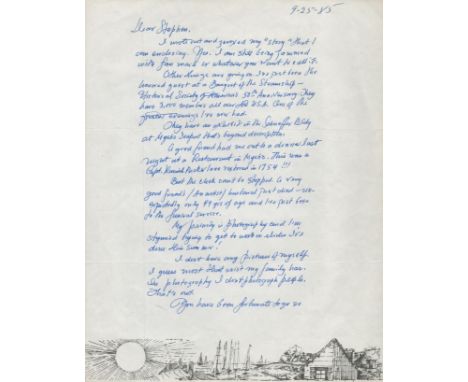 9-25-85
Dear Stephen,
I wrote out and xeroxed my "story" that I
am enclosing. Yes. I am still being swamped
with fan mail or whatever you want to call it.
Other things are going on. I've just been the
honored guest at a Banquet of the Steamship
Historical Society of America's 50th Anniversary. They
have 3,000 members all over the U.S.A. One of the
greatest evenings I've ever had.
They have an exhibit in the Schaefer Bldg
at Mystic Seaport that's beyond description.
A good friend had me out to a dinner last
night at a Restaurant in Mystic. This was a
Capt. Packer house restored in 1754 !!!
But the clock can't be stopped. A very
good friend's (an artist) husband just died
only 49 yrs of age and I've just been
to the funeral service.
My passion is photography and I'm
trying to get to work on slides I've
done this summer.
I don't have any pictures of myself.
I guess most that exist my family has.
In photography I don't photograph people.
That's out.
You have been fortunate to go on